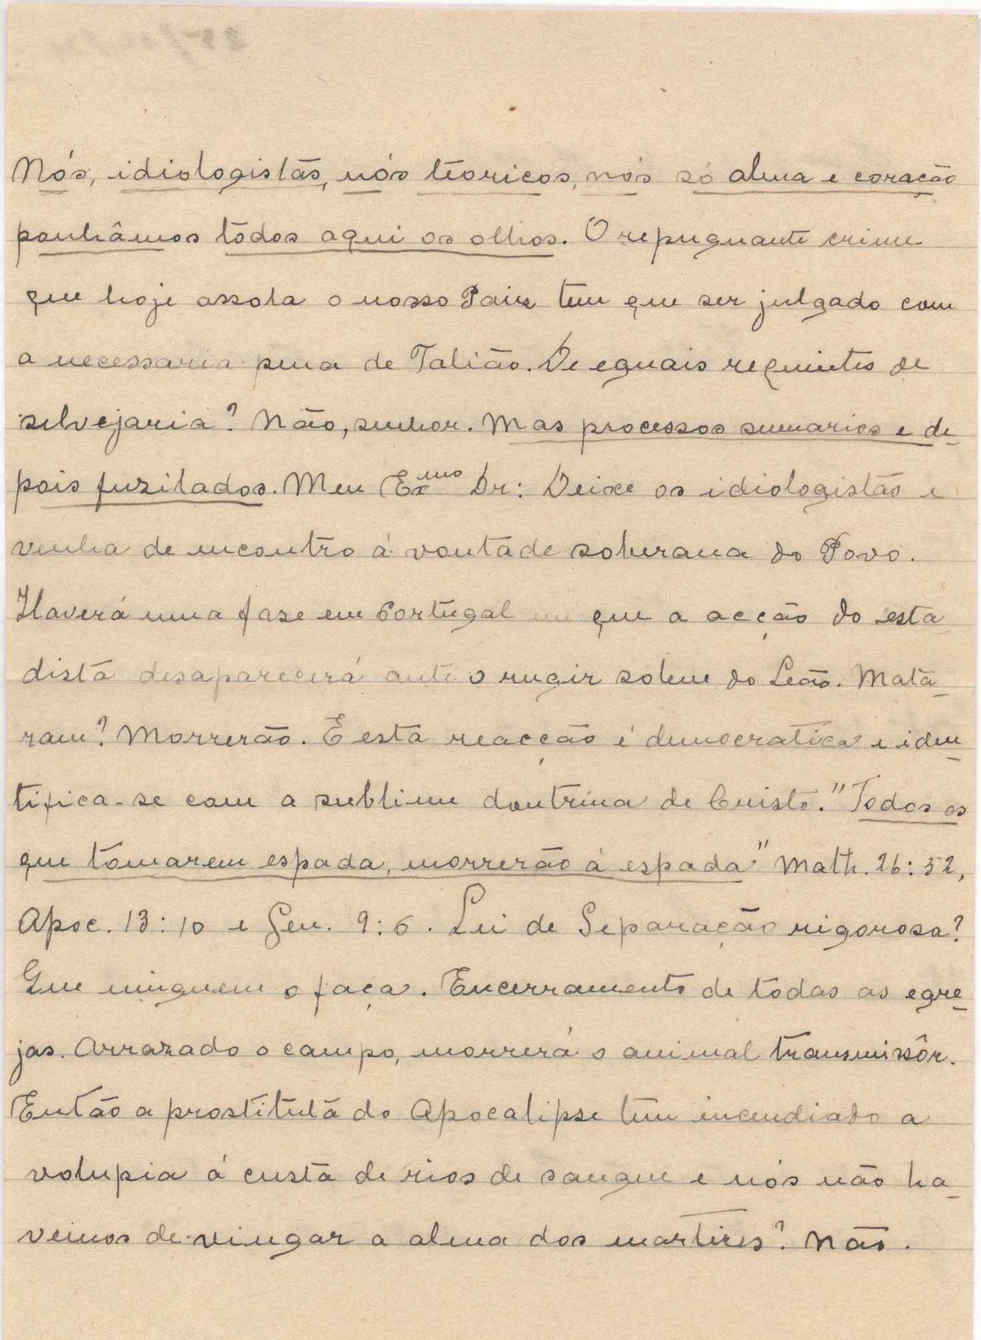 Nós, idiologistas, nós teoricos, nós só alma e coração
ponhâmos todos aqui os olhos. O repugnante crime
que hoje assola o nosso Paiz tem que ser julgado com
a necessaria pena de Talião. De eguais requintes de
selvejaria? Não, senhor. Mas processos sumarios e de-
pois fuzilados. Meu Exmo Dr: Deixe os idiologistas e
venha de encontro á vontade soberana do Povo.
Haverá uma fase em Portugal em que a acção do esta-
dista desaparecerá ante o rugir solene do Leão. Mata-
ram? Morrerão. E esta reacção é democratica e iden-
tifica-se com a sublime doutrina de Cristo. "Todos os
que tomarem espada, morrerão á espada" Math. 26:52,
Apoc. 13:10 e Gen. 9:6. Lei de Separação rigorosa?
Que ninguem o faça. Encerramento de todas as egre-
jas. Arrazado o campo, morrerá o animal transmissôr.
Então a prostituta do Apocalipse tem incendiado a
volupia á custa de rios de sangue e nós não ha-
vemos de vingar a alma dos martires? Não.